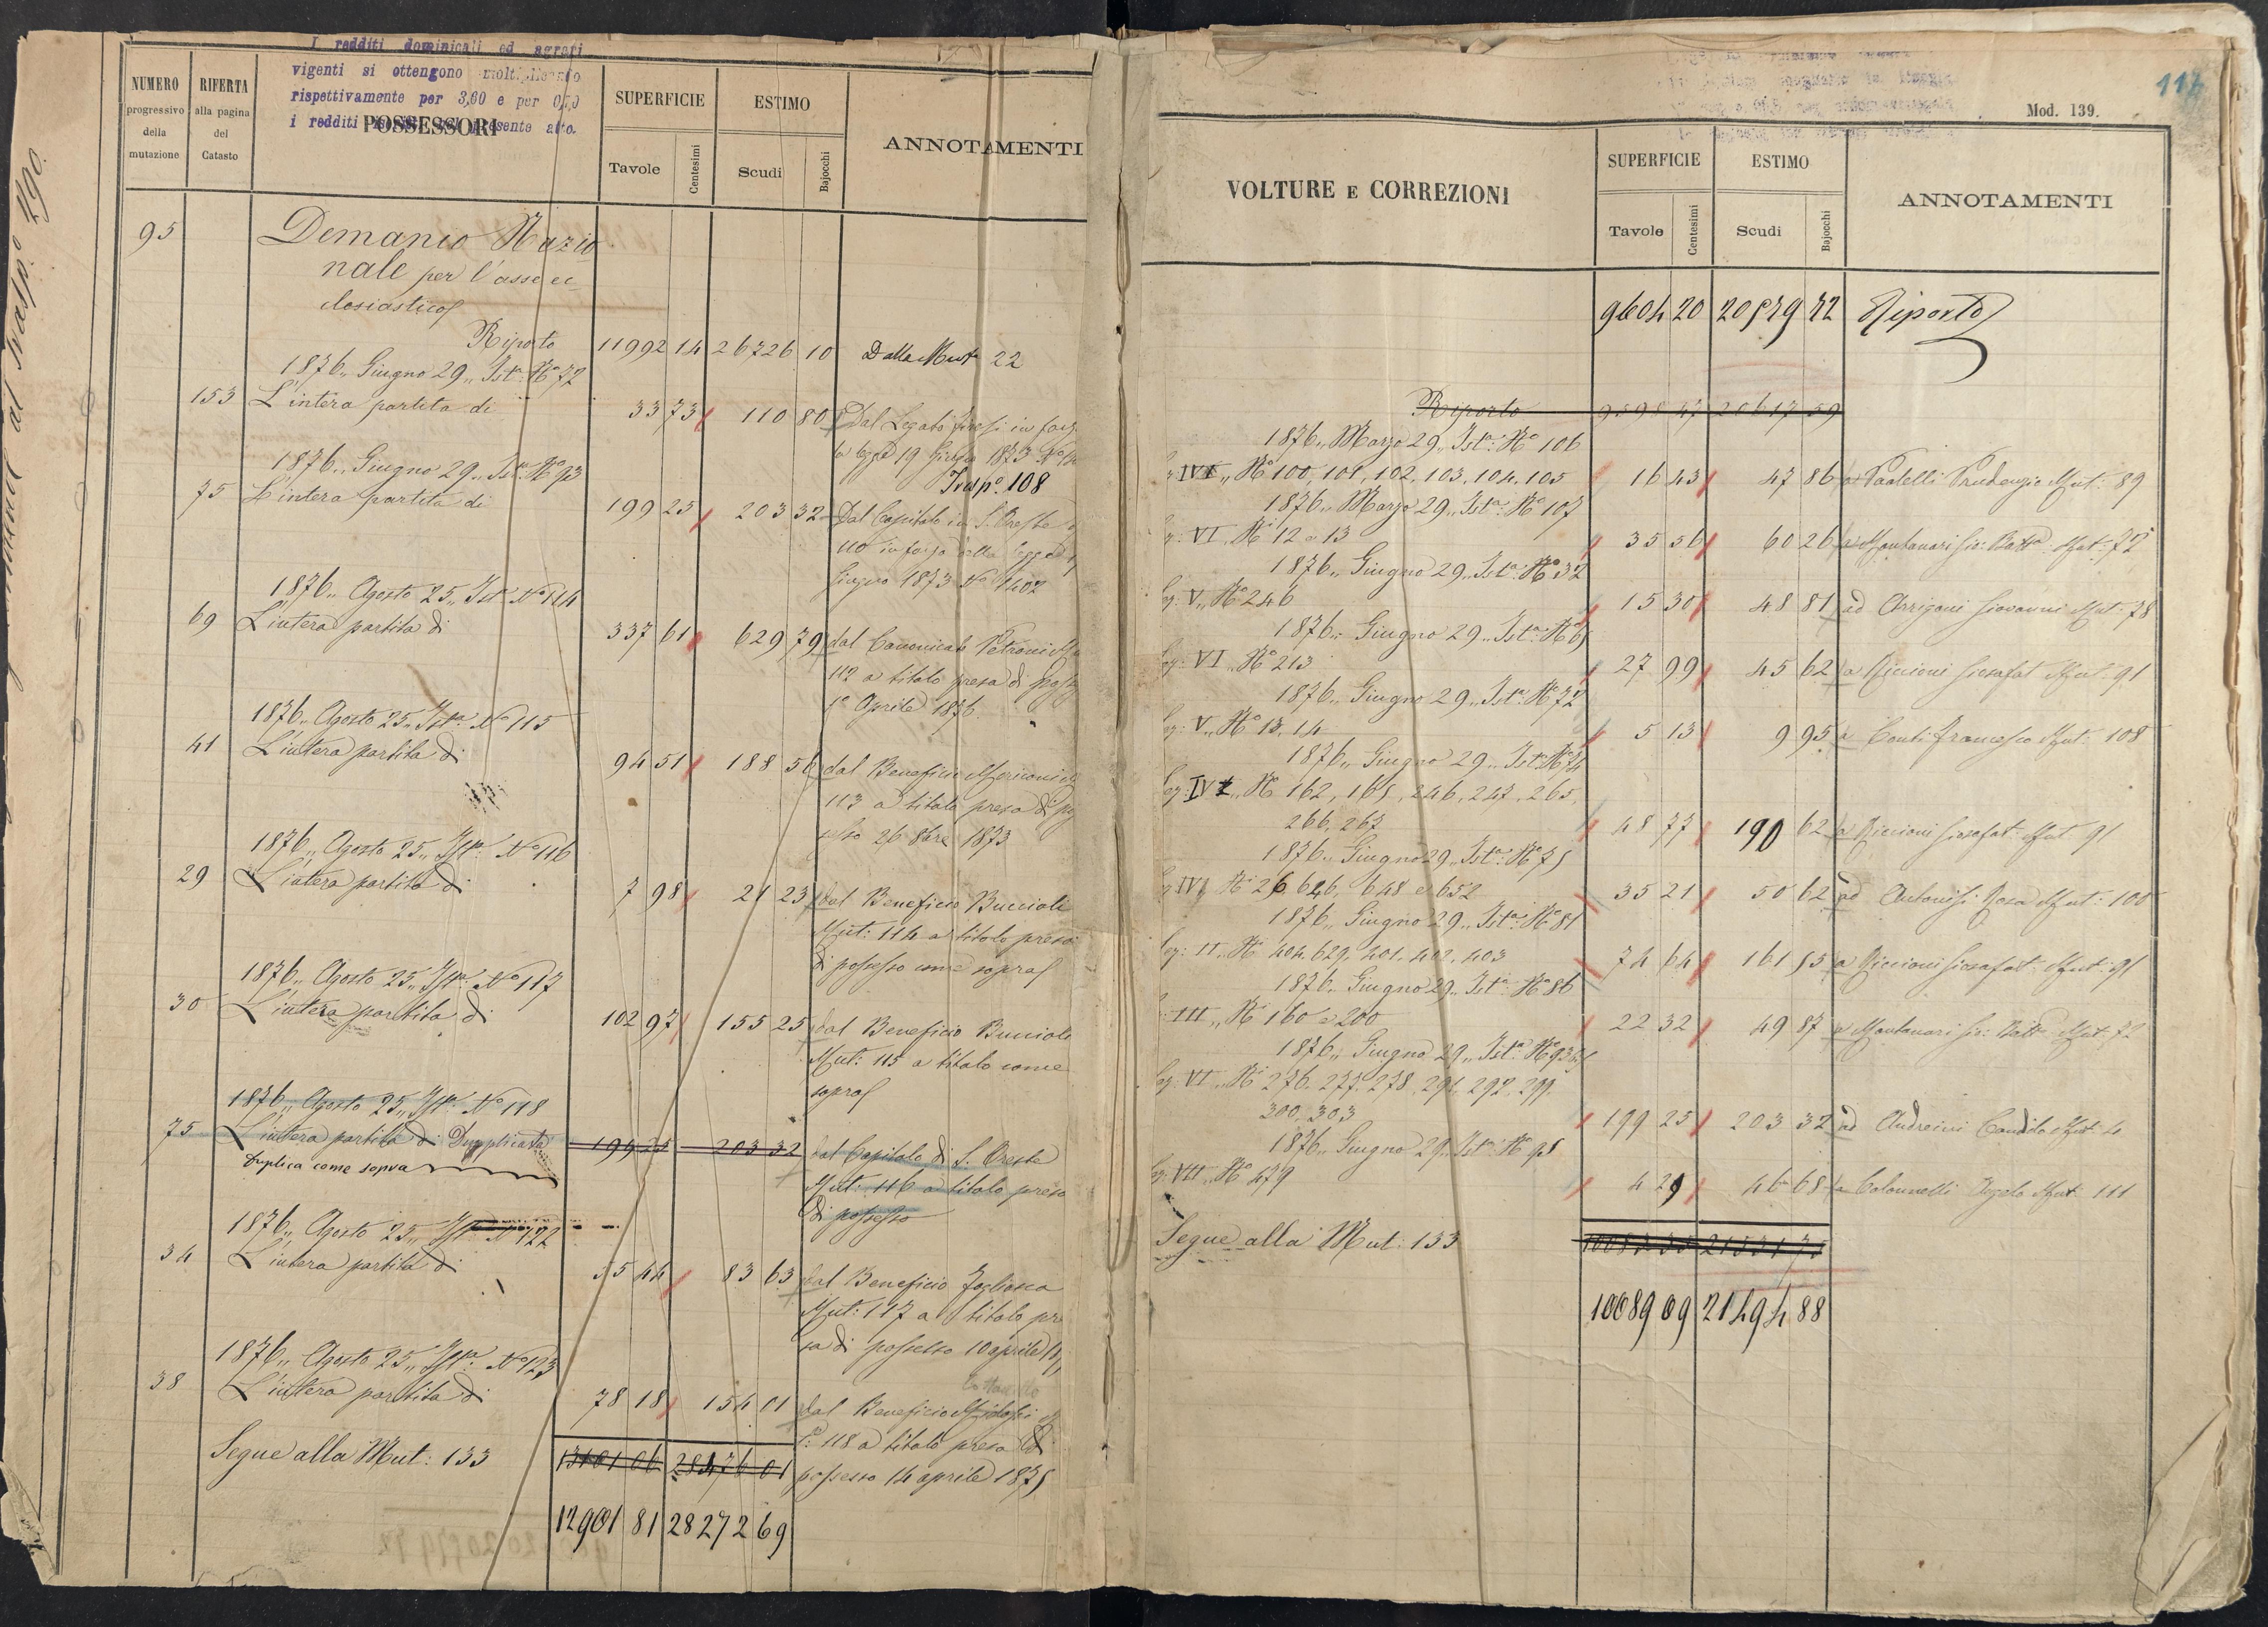 I redditi dominicali ed agrari
vigenti si ottengono moltiplicando
rispettivamente per 3,60 e per 0,50
i redditi presente atto.
NUMERO
progressivo
della
mutazione
RIFERTA
alla pagina
del
Catasto
POSSESSORI
SUPERFICIE
Tavole
Centesimi
ESTIMO
Scudi
Bajocchi
ANNOTAMENTI
al trasp.o 290.
95
Demanio Nazio
nale per l'asse ec
clesiastico
Riporto 11992 14 26726 10 Dalla Mut. 22
1876,, Giugno 29,, Ist.a N.o 72
153 L'intera partita di 33 73 110 80 Dal Legato in forza
la legge 19 Giugno 1873 N.o
Trasp.o 108
1876,, Giugno 29,, Ist.a N.o 93
75 L'intera partita di 199 25 203 32 Dal Capitolo in S. Oreste
110 in forza della legge
Giugno 1873 N.o 1402
1876,, Agosto 25,, Ist.a N.o 114
69 L'intera partita di 337 61 629 79 dal Canonicato Petroni
112 a titolo presa di poss
1.o Aprile 1876
1876,, Agosto 25,, Ist.a N.o 115
41 L'intera partita di 94 51 188 56 dal Beneficio
113 a titolo presa di po
sesso 26 8bre 1873
1876,, Agosto 25,, Ist.a N.o 116
29 L'intera partita di 7 98 21 23 dal Beneficio Buccioli
Mut: 114 a titolo presa
di possesso come sopra
1876,, Agosto 25,, Ist.a N.o 117
30 L'intera partita di 102 97 155 25 dal Beneficio Buccioli
Mut: 115 a titolo come
sopra
1876,, Agosto 25,, Ist.a N.o 118
75 L'intera partita di Dupplicata 199 25 203 32 dal Capitolo di S. Oreste
Duplica come sopra
Mut: 116 a titolo presa
di possesso
1876,, Agosto 25,, Ist.a N.o 122
34 L'intera partita di 55 44 83 63 dal Beneficio
Mut: 117 a titolo pre
sa di possesso 10 aprile
1876,, Agosto 25,, Ist.a N.o 123
38 L'intera partita di 78 18 154 01 dal Beneficio
118 a titolo presa di
Segue alla Mut: 133 13101 06 28476 01 possesso 14 aprile 1875
12901 81 28272 69
116
Mod. 139.
VOLTURE E CORREZIONI
SUPERFICIE
Tavole
Centesimi
ESTIMO
Scudi
Bajocchi
ANNOTAMENTI
9604 20 20579 72 Riporto
Riporto
1876,, Marzo 29,, Ist.a N.o 106
N.o 100, 101, 102, 103, 104, 105 16 43 47 86 a Paolelli Prudenzio Mut: 89
1876,, Marzo 29,, Ist.a N.o 107
VI N.i 12 e 13 35 56 60 26 a Montanari Gio: Batta Mut: 72
1876,, Giugno 29,, Ist.a N.o 32
V,, N.o 246 15 30 48 81 ad Arrigoni Giovanni Mut: 78
1876,, Giugno 29,, Ist.a N.o
VI,, N.o 213 27 99 45 62 a Riccioni Giosafat Mut: 91
1876,, Giugno 29,, Ist.a N.o 72
V,, N.o 13, 14 5 13 9 95 a Conti Francesco Mut: 108
1876,, Giugno 29,, Ist.a N.o 74
N.i 162, 165, 246, 247, 265,
266, 267 48 77 190 62 a Riccioni Giosafat Mut: 91
1876,, Giugno 29,, Ist.a N.o 75
N.i 26, 646, 648 e 652 35 21 50 62 ad Antonisi Rosa Mut: 100
1876,, Giugno 29,, Ist.a N.o 81
N.i 404, 629, 401, 402, 403 74 64 161 55 a Riccioni Giosafat Mut: 91
1876,, Giugno 29,, Ist.a N.o 86
III,, N.i 160 e 200 22 32 49 87 a Montanari Gio: Batta Mut: 72
1876,, Giugno 29,, Ist.a N.o 93
VI,, N.i 276, 277, 278, 291, 292, 299,
300, 303 199 25 203 32 ad Andreini Candido Mut:
1876,, Giugno 29,, Ist.a N.o 95
VII,, N.o 479 4 29 46 68 a Colonnelli Angelo Mut: 111
Segue alla Mut: 133
10089 09 21494 88